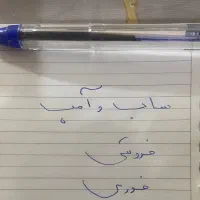 ساب و آمپ
فروشی
فوری